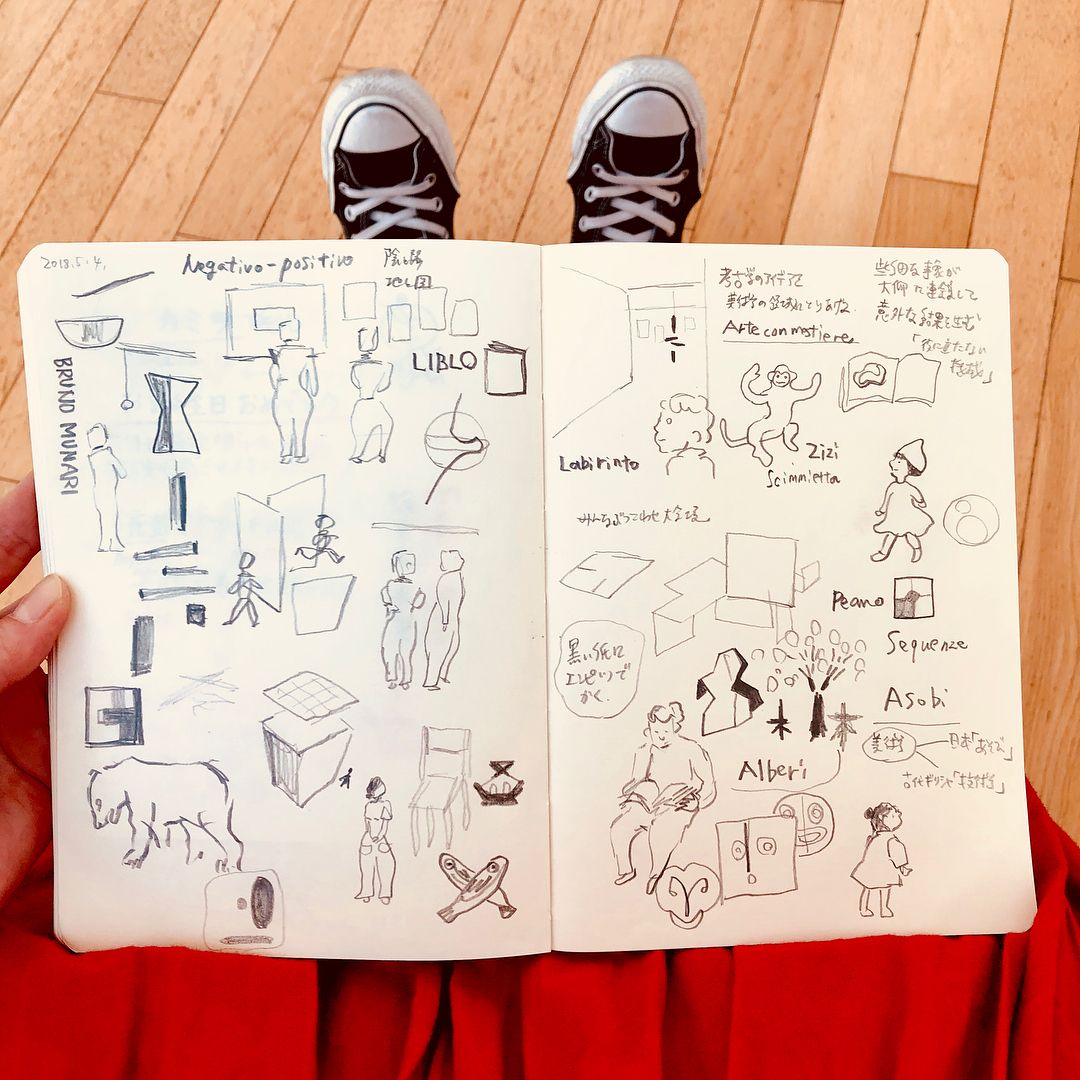 2018.5.4.
Negativo-positivo
陰と陽
地と図
BRUNO MUNARI
LIBLO
考古学のアイデアを
美術の領域にとりあげる.
Arte con mestiere.
些細な事象が
大仰に連鎖して
意外な結果を生む
「役に立たない
機械」
Labirinto
Zizi
Scimmietta
大会場
Peano
Sequenze
黒い紙に
エンピツで
かく.
Asobi
美術
日本「あそび」
古代ギリシャ「技術」
Alberi